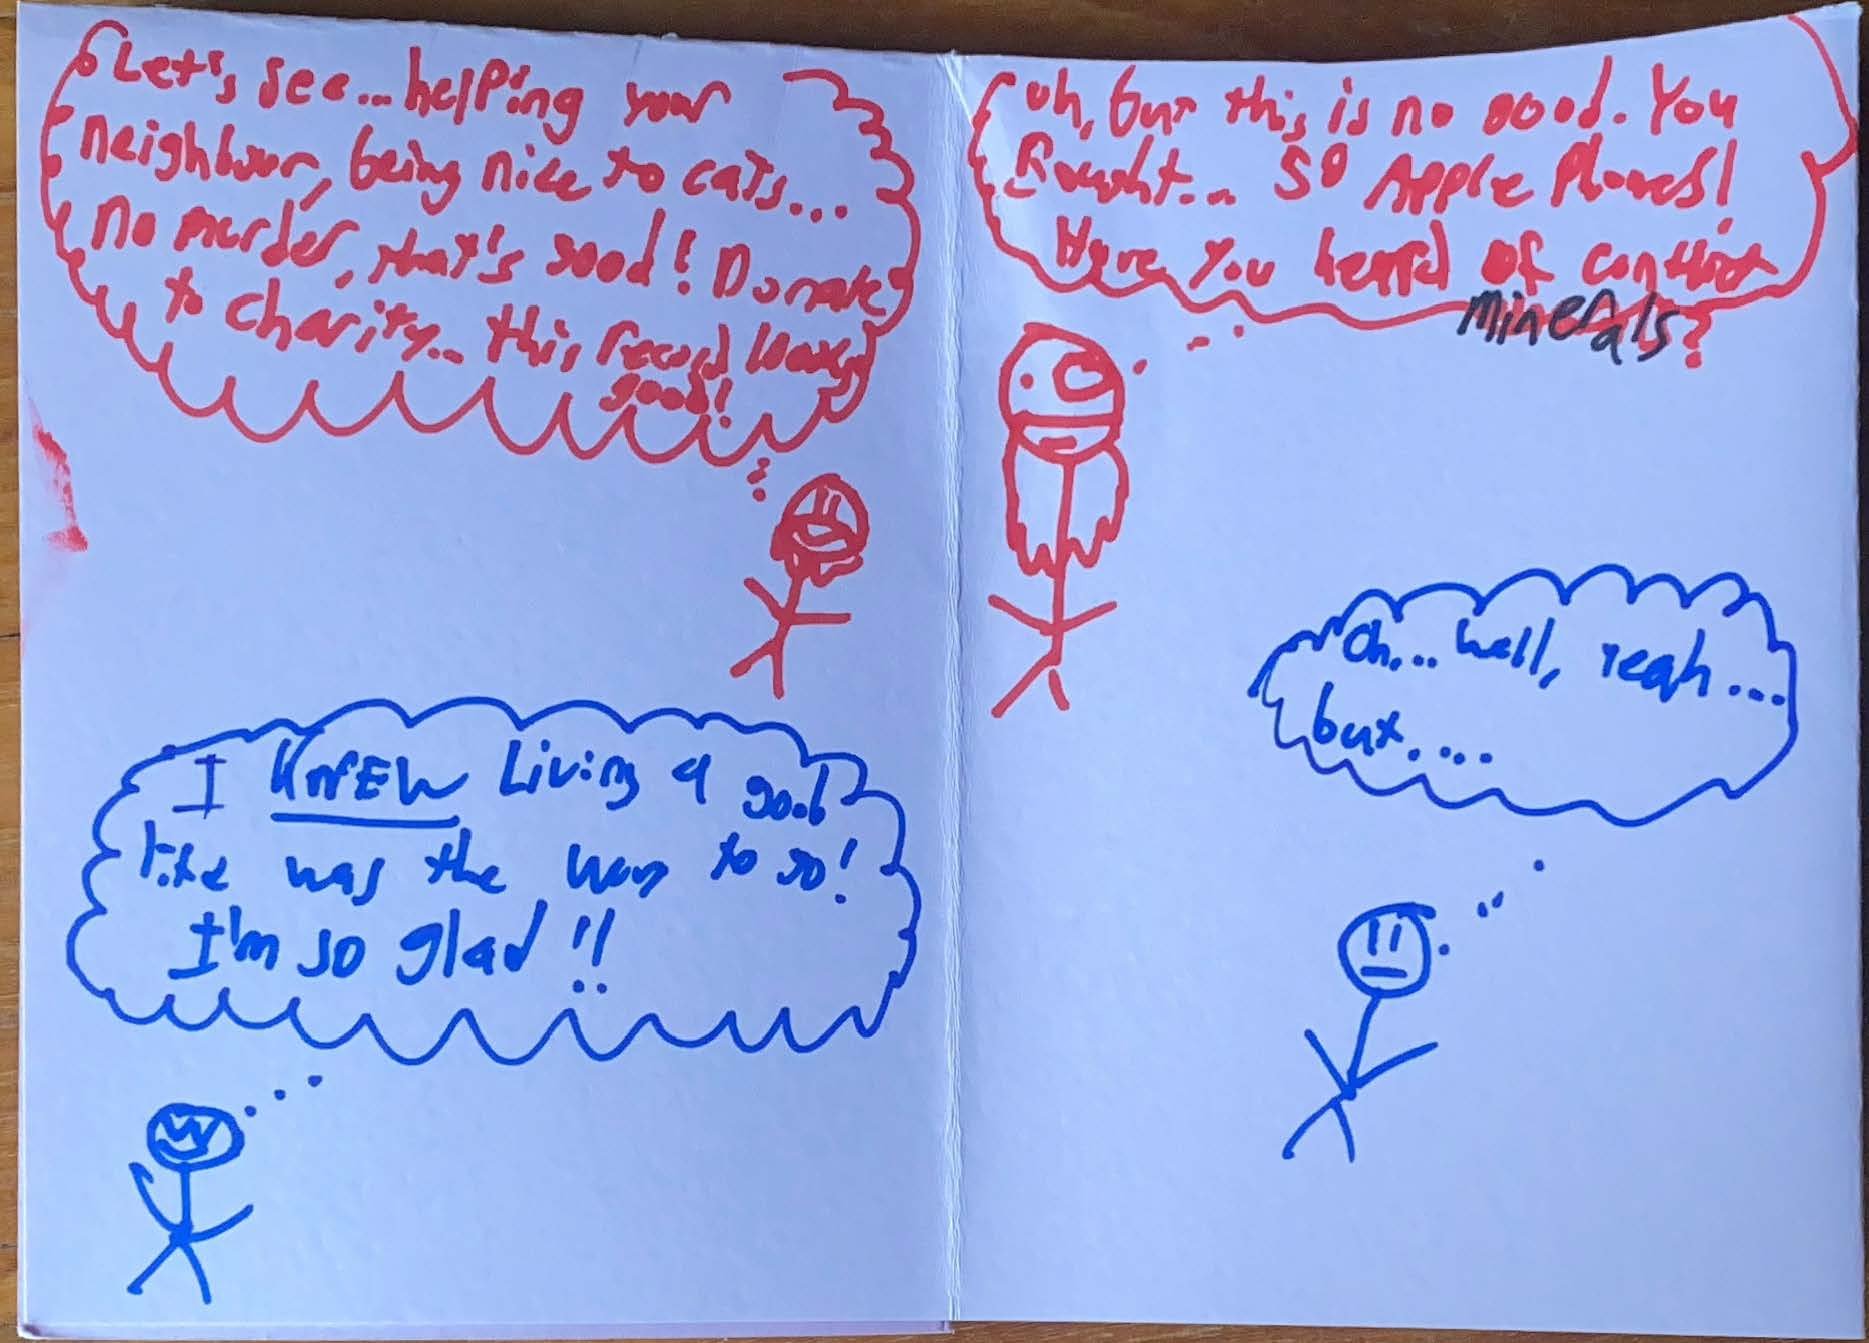 Let's see... helping your
neighbour, being nice to cats...
no murder, that's good! Donate
to charity... this record looks
good!
I KNEW Living a good
life was the way to go!
I'm so glad!!
uh, but this is no good. You
Bought... 50 Apple Phones!
Have you heard of conflict
minerals?
Oh... well, yeah...
but....